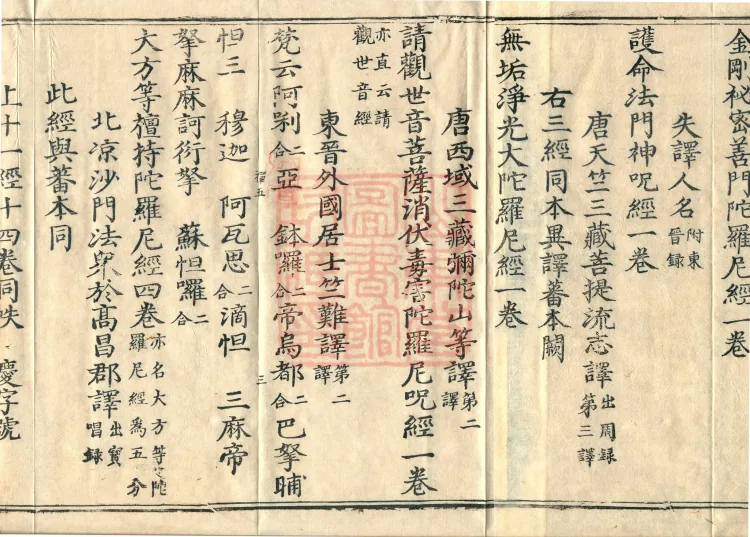 金剛秘密善門陀羅尼經一卷
失譯人名附東晉錄
護命法門神呪經一卷
唐天竺三藏菩提流志譯出周錄第三譯
右三經同本異譯蕃本闕
無垢淨光大陀羅尼經一卷
唐西域三藏彌陀山等譯第二譯
請觀世音菩薩消伏毒害陀羅尼呪經一卷
亦直云請觀世音經
東晉外國居士竺難譯第二譯
梵云阿剎二合亞 鉢囉二合帝烏都二合巴拏晡
怛三 穆迦 阿瓦思二合滴怛 三麻帝
拏麻麻訶衍拏 蘇怛囉二合
大方等檀持陀羅尼經四卷亦名大方等陀羅尼經為五分
北凉沙門法眾於高昌郡譯出寶唱錄
此經與蕃本同
上十一經十四卷同帙 慶字號